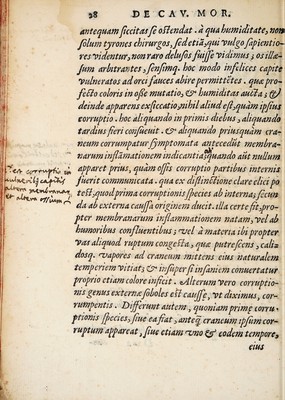 28 DE CAV. MOR.
antequam siccitas se ostendat. à qua humiditate, non
solum tyrones chirurgos, sed etiã, qui vulgo sapientio-
res videntur, non raro delusos fuisse vidimus; os illæ-
sum arbitrantes, sensimq. hoc modo infelices capite
vulneratos ad orci fauces abire permittẽtes. quæ pro-
fecto coloris in osse mutatio, & humiditas aucta; &
deinde apparens exsiccatio, nihil aliud est, quàm ipsius
corruptio. hoc aliquando in primis diebus, aliquando
tardius fieri consueuit. & aliquando priusquàm cra-
neum corrumpatur symptomata antecedũt membra-
narum inflãmationem indicantia; quando aũt nullum
apparet prius, quàm ossis corruptio partibus internis
fuerit communicata. qua ex distinctione clare elici po
test, quod prima corruptionis species ab interna; secun
da ab externa caussa originem ducit. illa certe fit, pro-
pter membranarum inflammationem natam, vel ab
humoribus confluentibus; vel à materia ibi propter
vas aliquod ruptum congesta, quæ putrescens, calidosq.
vapores ad craneum mittens eius naturalem
temperiem vitiat; & insuper si insaniem conuertatur
proprio etiam colore inficit. Alterum vero corruptio-
nis genus externa soboles est caussæ, vt diximus, cor-
rumpentis. Differunt autem, quoniam prime corru-
ptionis species, siue ea fiat, anteq̃ craneum ipsum cor-
ruptum appareat, siue etiam vno & eodem tempore,
eius
corruptio in
capitis
membranar
et ossium